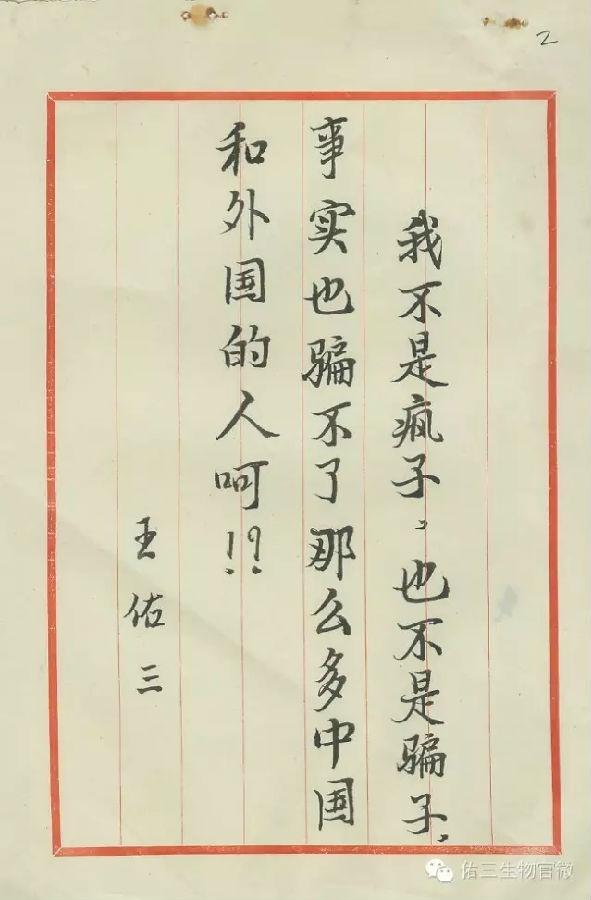 2
我不是疯子，也不是骗子，
事实也骗不了那么多中国
和外国的人呵!?
王佑三
佑三生物官微